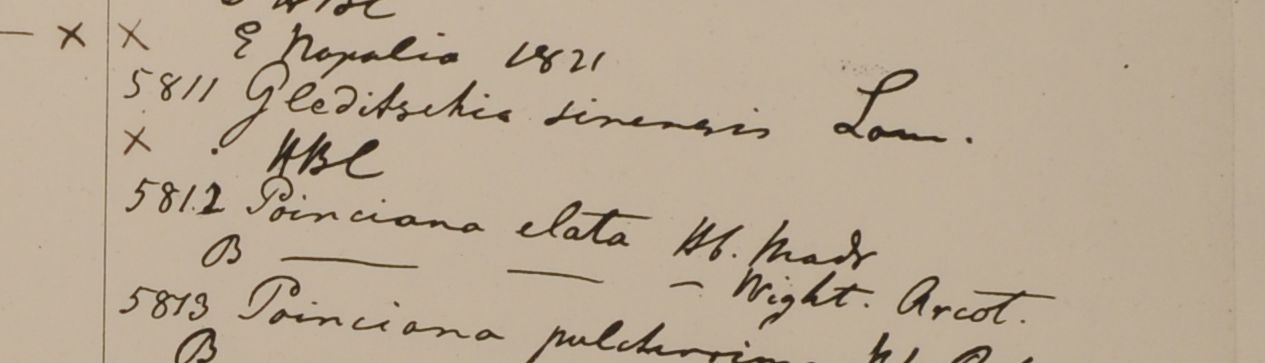 HBC
— × × E Napalia 1821
5811 Gleditschia sinensis Lam.
× . HBC
5812 Poinciana elata Hb. Madr
B —— — - Wight. Arcot.
5813 Poinciana pulcherrima Hb.
B